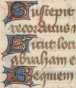 Suscepit
recordatus
Sicut locu
abraham e
Requiem